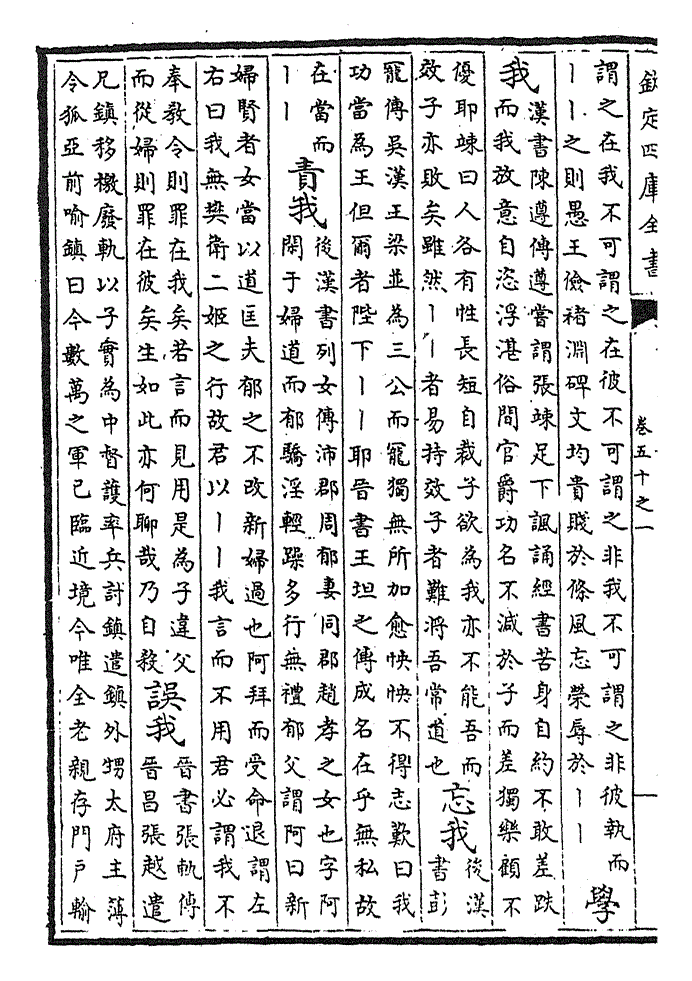 欽定四庫全書 卷五十之一
謂之在我不可謂之在彼不可謂之非我不可謂之非彼執而
丨丨之則愚王儉褚淵碑文均貴賤於條風忘榮辱於丨丨
學
我
漢書陳遵傳遵嘗謂張竦足下諷誦經書苦身自約不敢差跌
而我放意自恣浮湛俗間官爵功名不減於子而差獨樂顧不
優耶竦曰人各有性長短自裁子欲為我亦不能吾而
效子亦敗矣雖然丨丨者易持效子者難將吾常道也
忘我
後漢
書彭
寵傳吳漢王梁並為三公而寵獨無所加愈怏怏不得志歎曰我
功當為王但爾者陛下丨丨耶晉書王坦之傳成名在乎無私故
在當而
丨丨
責我
後漢書列女傳沛郡周郁妻同郡趙孝之女也字阿
閑于婦道而郁驕淫輕躁多行無禮郁父謂阿曰新
婦賢者女當以道匡夫郁之不改新婦過也阿拜而受命退謂左
右曰我無樊衛二姬之行故君以丨丨我言而不用君必謂我不
奉教令則罪在我矣若言而見用是為子違父
而從婦則罪在彼矣生如此亦何聊哉乃自殺
誤我
晉書張軌傳
晉昌張越遣
兄鎮移檄廢軌以子實為中督護率兵討鎮遣鎮外甥太府主簿
令狐亞前喻鎮曰今數萬之軍已臨近境今唯全老親存門戶輸